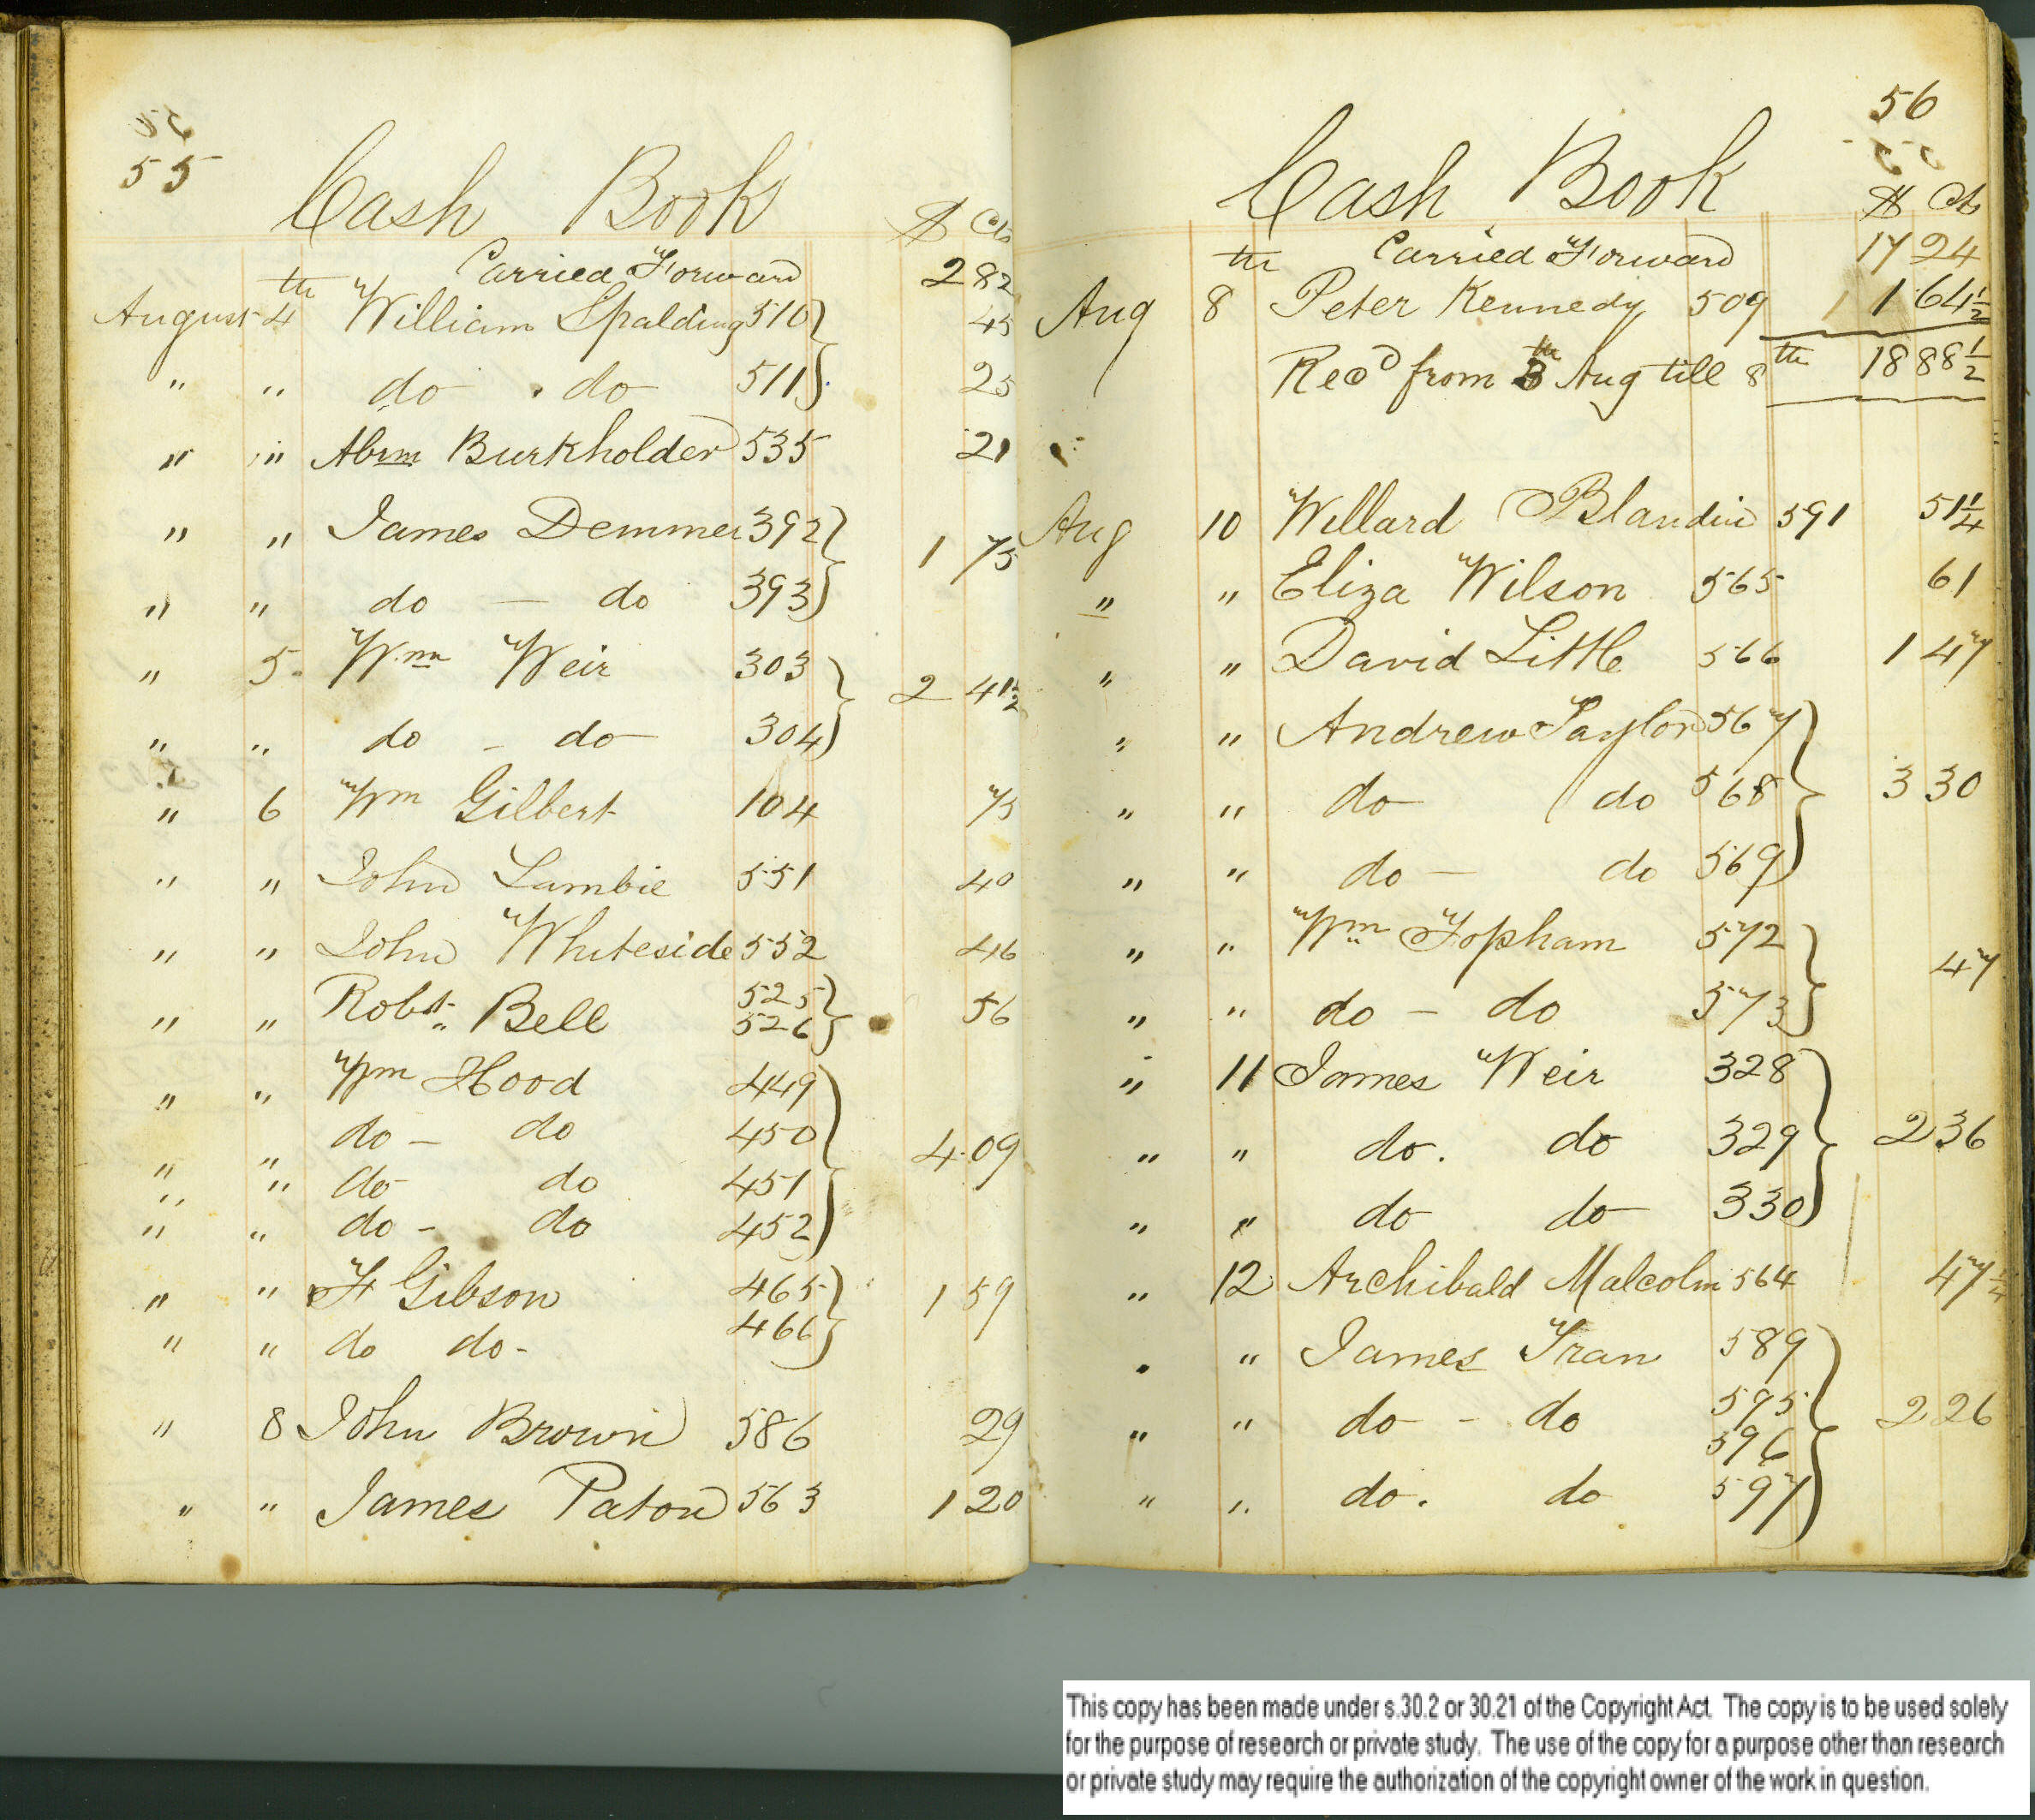 55
Cash Book
$ Cts
Carried Forward 2 82
August 4th William Spalding 510 } 45
" " do do 511 } 25
" " Abrm Burkholder 535 21
" " James Demmer 392 } 1 75
" " do — do 393 }
" 5 Wm Weir 303 } 2 41½
" " do - do 304 }
" 6 Wm Gilbert 104 75
" " John Lambie 551 40
" " John Whiteside 552 46
" " Robt Bell 525 526 } 56
" " Wm Hood 449 }
" " do - do 450 } 4 09
" " do do 451 }
" " do - do 452 }
" " F Gibson 465 } 1 59
" " do do - 466 }
" 8 John Brown 586 29
" " James Paton 563 1 20
56
Cash Book
$ Cts
Carried Forward 17 24
Aug 8th Peter Kennedy 509 1 64½
Recd from 3th Aug till 8th 18 88½
Aug 10 Willard Blandin 591 51¼
" " Eliza Wilson 565 61
" " David Little 566 1 47
" " Andrew Taylor 567 }
" " do do 568 } 3 30
" " do — do 569 }
" " Wm Topham 572 } 47
" " do - do 573 }
" 11 James Weir 328 }
" " do. do 329 } 2 36
" " do do 330 }
" 12 Archibald Malcolm 564 47¼
" " James Tran 589 }
" " do - do 595 596 } 2 26
" " do. do 597 }
This copy has been made under s.30.2 or 30.21 of the Copyright Act. The copy is to be used solely
for the purpose of research or private study. The use of the copy for a purpose other than research
or private study may require the authorization of the copyright owner of the work in question.